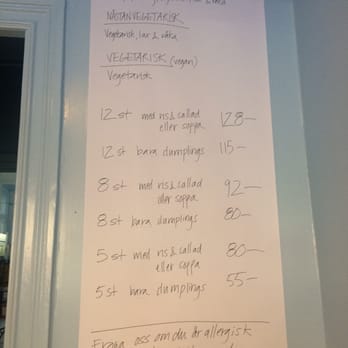 NÄSTAN VEGETARISK
Vegetarisk, lax & räka
VEGETARISK (vegan)
Vegetarisk
12 st med ris & sallad 128-
eller soppa
12 st bara dumplings 115-
8 st med ris & sallad 92-
eller soppa
8 st bara dumplings 80-
5 st med ris & sallad 80-
eller soppa
5 st bara dumplings 55-
Fråga oss om du är allergisk